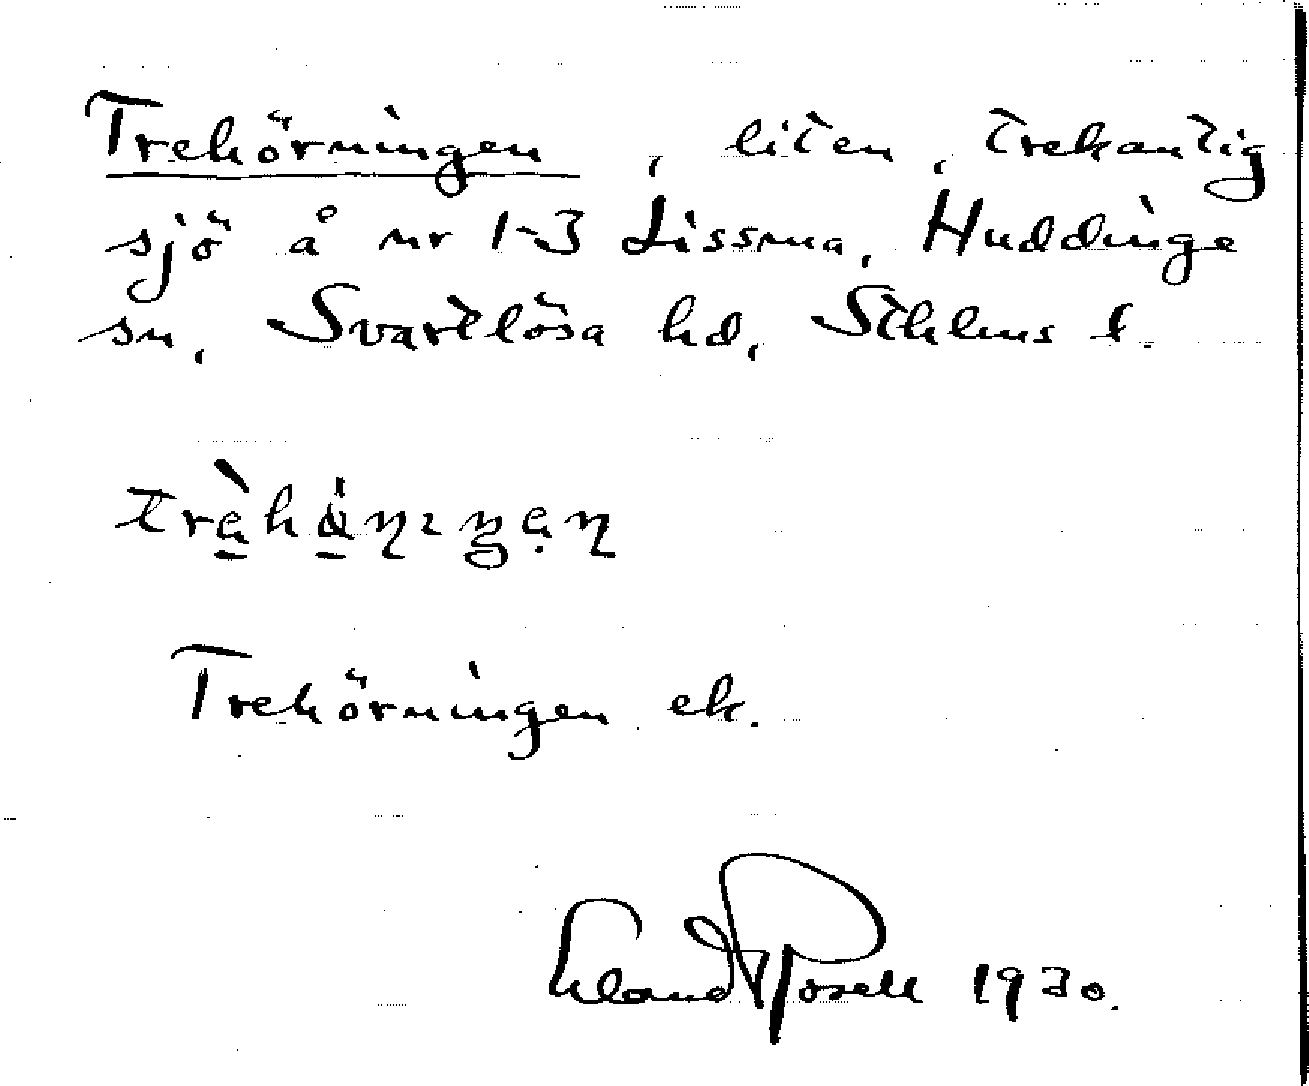 Trehörningen, liten, trekantig
sjö å nr 1-3 Lissma, Huddinge
sn, Svartlösa hd, Sthlms l.
Trehörningen ek.
Erland Rosell 1930.